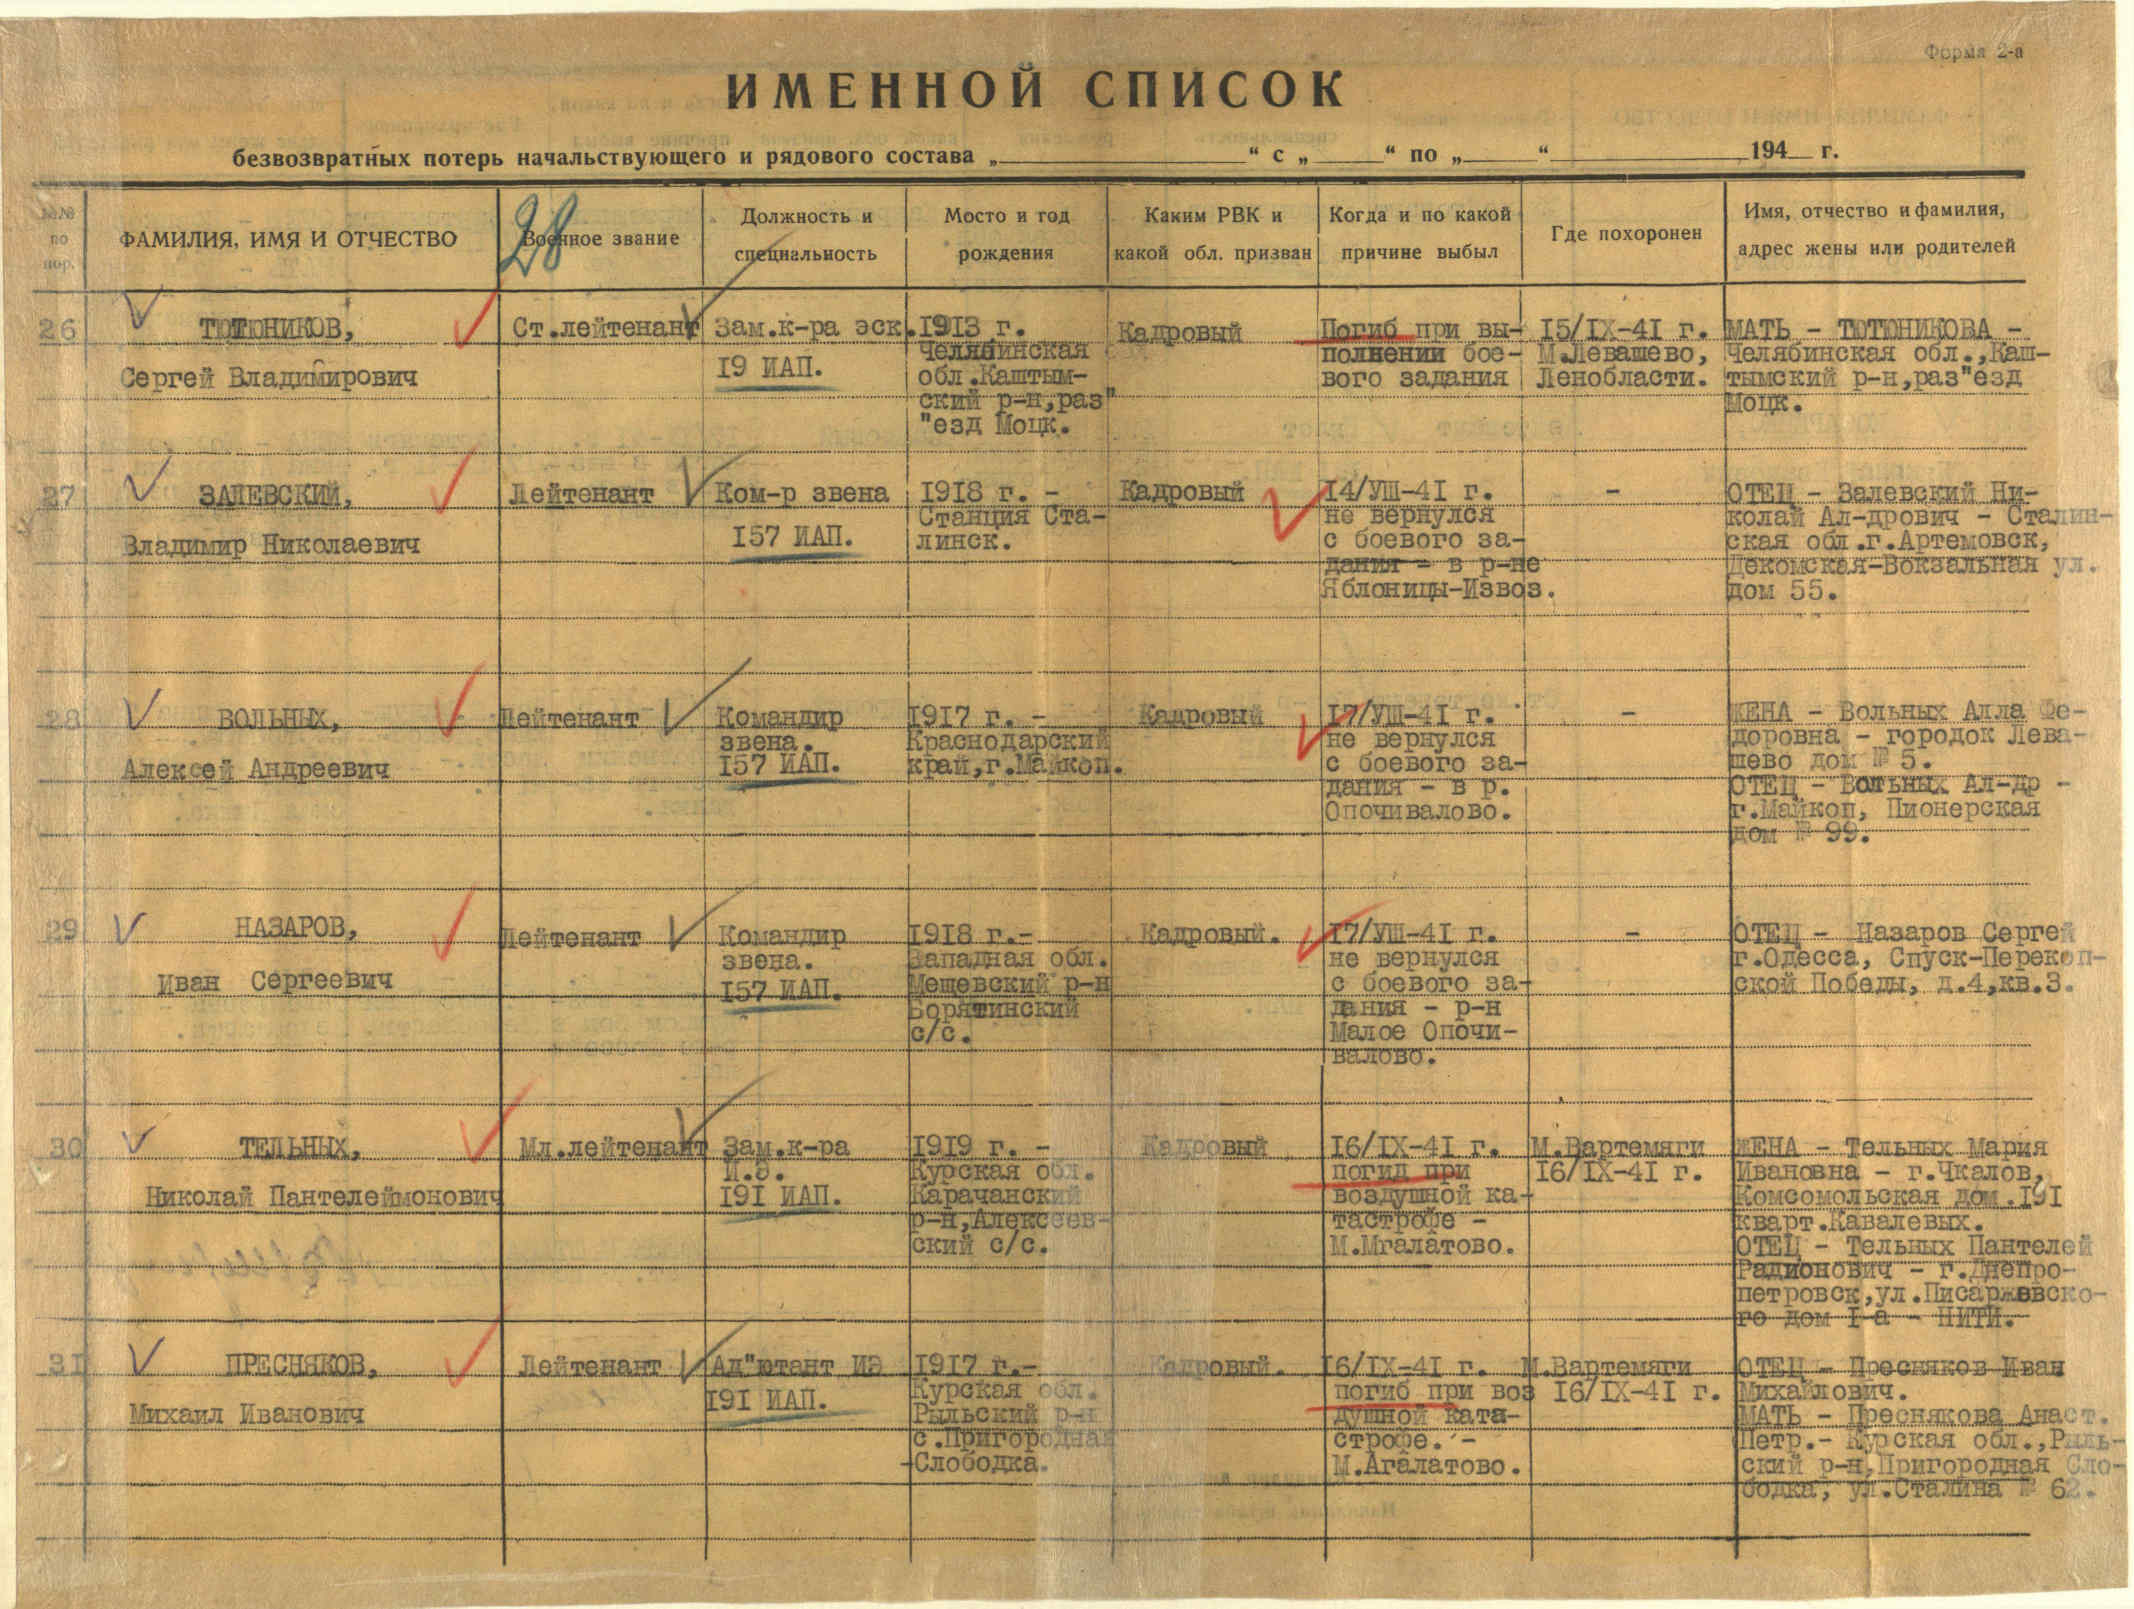 Форма 2-а
ИМЕННОЙ СПИСОК
безвозвратных потерь начальствующего и рядового состава „ “ с „ “ по „ “ 194 г.
№№ по пор.
ФАМИЛИЯ, ИМЯ И ОТЧЕСТВО
Военное звание
28
Должность и
специальность
Мосто и год
рождения
Каким РВК и
какой обл. призван
Когда и по какой
причине выбыл
Где похоронен
Имя, отчество и фамилия,
адрес жены или родителей
26
ТЮТЮНИКОВ,
Сергей Владимирович
Ст.лейтенант
Зам.к-ра эск.
19 ИАП.
1913 г.
Челябинская
обл.Каштым-
ский р-н,раз"
"езд Моцк.
Кадровый
Погиб при вы-
полнении бое-
вого задания
15/IX-41 г.
М.Левашево,
Ленобласти.
МАТЬ - ТЮТЮНИКОВА -
Челябинская обл.,Каш-
тымский р-н,раз"езд
Моцк.
27
ЗАЛЕВСКИЙ,
Владимир Николаевич
Лейтенант
Ком-р звена
157 ИАП.
1918 г. -
Станция Ста-
линск.
Кадровый
14/УШ-41 г.
не вернулся
с боевого за-
дания - в р-не
Яблоницы-Извоз.
-
ОТЕЦ - Залевский Ни-
колай Ал-дрович - Сталин-
ская обл.г.Артемовск,
Декомская-Вокзальная ул.
дом 55.
28
ВОЛЬНЫХ,
Алексей Андреевич
Лейтенант
Командир
звена.
157 ИАП.
1917 г. -
Краснодарский
край,г.Майкоп.
Кадровый
17/УШ-41 г.
не вернулся
с боевого за-
дания - в р.
Опочивалово.
-
ЖЕНА - Вольных Алла Фе-
доровна - городок Лева-
шево дом № 5.
ОТЕЦ - Вольных Ал-др -
г.Майкоп, Пионерская
дом № 99.
29
НАЗАРОВ,
Иван Сергеевич
Лейтенант
Командир
звена.
157 ИАП.
1918 г.-
Западная обл.
Мещевский р-н
Борятинский
с/с.
Кадровый.
17/УШ-41 г.
не вернулся
с боевого за-
дания - р-н
Малое Опочи-
валово.
-
ОТЕЦ - Назаров Сергей
г.Одесса, Спуск-Перекоп-
ской Победы, д.4,кв.3.
30
ТЕЛЬНЫХ,
Николай Пантелеймонович
Мл.лейтенант
Зам.к-ра
И.Э.
191 ИАП.
1919 г. -
Курская обл.
Карачанский
р-н,Алексеев-
ский с/с.
Кадровый
16/IX-41 г.
погид при
воздушной ка-
тастрофе -
М.Мгалатово.
М.Вартемяги
16/IX-41 г.
ЖЕНА - Тельных Мария
Ивановна - г.Чкалов,
Комсомольская дом.191
кварт.Кавалевых.
ОТЕЦ - Тельных Пантелей
Радионович - г.Днепро-
петровск,ул.Писаржевско-
го дом 1-а - НИТИ.
31
ПРЕСНЯКОВ,
Михаил Иванович
Лейтенант
Ад"ютант ИЭ
191 ИАП.
1917 г.-
Курская обл.
Рыльский р-н
с.Пригородная
-Слободка.
Кадровый.
16/IX-41 г.
погиб при воз
душной ката-
строфе. -
М.Агалатово.
М.Вартемяги
16/IX-41 г.
ОТЕЦ - Пресняков Иван
Михайлович.
МАТЬ - Преснякова Анаст.
Петр.- Курская обл.,Рыль-
ский р-н,Пригородная Сло-
бодка, ул.Сталина № 62.